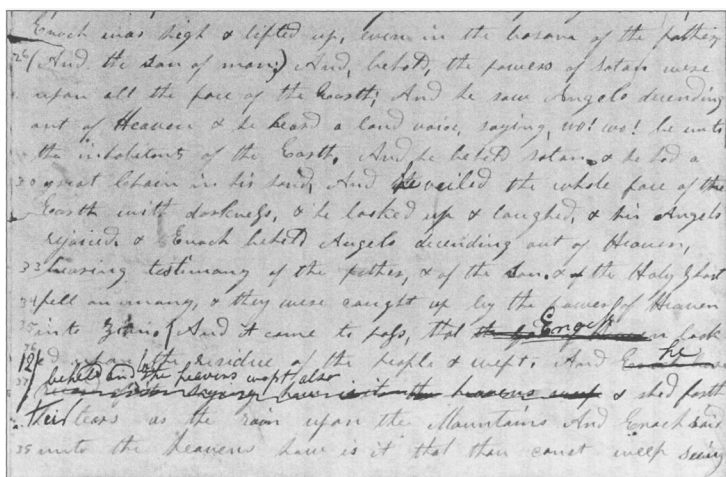 Enoch was high & lifted up, even in the bosom of the father
And the Son of man;) And, behold, the powers of satan were
upon all the face of the Earth; And he saw Angels decending
out of Heaven & he heard a loud voice, saying, wo! wo! be unto
the inhabitants of the Earth. And he beheld satan & he had a
30 great Chain in his hand, And he veiled the whole face of the
Earth with darkness, & he looked up & laughed, & his Angels
rejoiced. & Enoch beheld Angels decending out of Heaven,
bearing testimony of the father, & of the Son. & of the Holy Ghost
fell on many, & they were caught up by the powers of Heaven
into Zion. And it came to pass, that the God of look
ed upon the residue of the people & wept. And he
beheld and the heavens wept also
& shed forth
their tears as the rain upon the Mountains And Enoch said
unto the heavens how is it that thou canst weep seeing